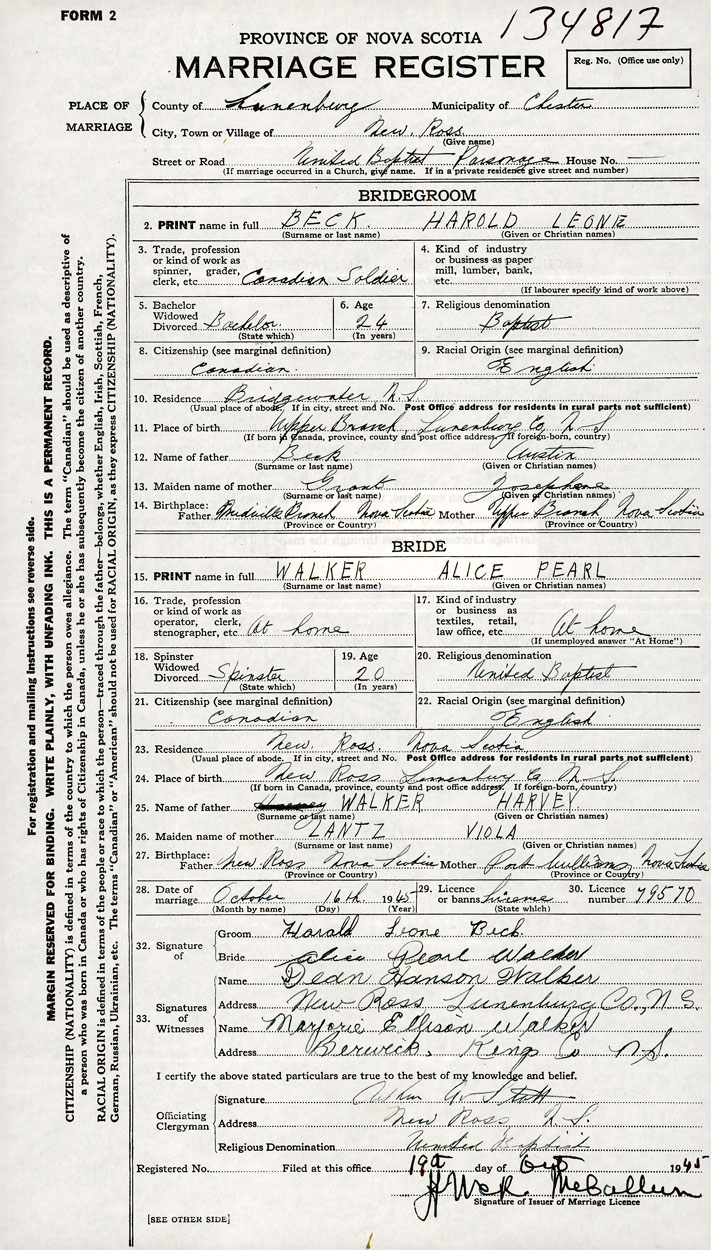 FORM 2
134817
PROVINCE OF NOVA SCOTIA
MARRIAGE REGISTER
Reg. No. (Office use only)
PLACE OF MARRIAGE
County of Lunenburg Municipality of Chester
City, Town or Village of New Ross
(Give name)
Street or Road United Baptist Parsonage House No. —
(If marriage occurred in a Church, give name. If in a private residence give street and number)
BRIDEGROOM
2. PRINT name in full BECK HAROLD LEONE
(Surname or last name) (Given or Christian names)
3. Trade, profession or kind of work as spinner, grader, clerk, etc. Canadian Soldier
4. Kind of industry or business as paper mill, lumber, bank, etc.
(If labourer specify kind of work above)
5. Bachelor Widowed Divorced Bachelor (State which)
6. Age 24 (In years)
7. Religious denomination Baptist
8. Citizenship (see marginal definition) Canadian
9. Racial Origin (see marginal definition) English
10. Residence Bridgewater N.S.
(Usual place of abode. If in city, street and No. Post Office address for residents in rural parts not sufficient)
11. Place of birth Upper Branch, Lunenburg Co, N S
(If born in Canada, province, county and post office address. If foreign-born, country)
12. Name of father Beck Austin
(Surname or last name) (Given or Christian names)
13. Maiden name of mother Grant Josephene
(Surname or last name) (Given or Christian names)
14. Birthplace: Father Midville Branch Nova Scotia Mother Upper Branch Nova Scotia
(Province or Country) (Province or Country)
BRIDE
15. PRINT name in full WALKER ALICE PEARL
(Surname or last name) (Given or Christian names)
16. Trade, profession or kind of work as operator, clerk, stenographer, etc. At home
17. Kind of industry or business as textiles, retail, law office, etc. At home
(If unemployed answer "At Home")
18. Spinster Widowed Divorced Spinster (State which)
19. Age 20 (In years)
20. Religious denomination United Baptist
21. Citizenship (see marginal definition) Canadian
22. Racial Origin (see marginal definition) English
23. Residence New Ross. Nova Scotia
(Usual place of abode. If in city, street and No. Post Office address for residents in rural parts not sufficient)
24. Place of birth New Ross Lunenburg Co N. S.
(If born in Canada, province, county and post office address. If foreign-born, country)
25. Name of father WALKER HARVEY
(Surname or last name) (Given or Christian names)
26. Maiden name of mother LANTZ VIOLA
(Surname or last name) (Given or Christian names)
27. Birthplace: Father New Ross Nova Scotia Mother Port Williams Nova Scotia
(Province or Country) (Province or Country)
28. Date of marriage October 16th 1945
(Month by name) (Day) (Year)
29. Licence or banns License (State which)
30. Licence number 79570
32. Signature of
Groom Harald Leone Beck
Bride Alice Pearl Walker
33. Signatures of Witnesses
Name Dean Hanson Walker
Address New Ross Lunenburg Co., N. S.
Name Marjorie Ellison Walker
Address Berwick, Kings Co N.S.
I certify the above stated particulars are true to the best of my knowledge and belief.
Officiating Clergyman
Signature
Address New Ross N.S.
Religious Denomination United Baptist
Registered No. Filed at this office 19th day of Oct 1945
McCallum
Signature of Issuer of Marriage Licence
[SEE OTHER SIDE]
For registration and mailing instructions see reverse side.
MARGIN RESERVED FOR BINDING. WRITE PLAINLY, WITH UNFADING INK. THIS IS A PERMANENT RECORD.
CITIZENSHIP (NATIONALITY) is defined in terms of the country to which the person owes allegiance. The term "Canadian" should be used as descriptive of
a person who was born in Canada or who has rights of Citizenship in Canada, unless he or she has subsequently become the citizen of another country.
RACIAL ORIGIN is defined in terms of the people or race to which the person—traced through the father—belongs, whether English, Irish, Scottish, French,
German, Russian, Ukrainian, etc. The terms "Canadian" or "American" should not be used for RACIAL ORIGIN, as they express CITIZENSHIP (NATIONALITY).